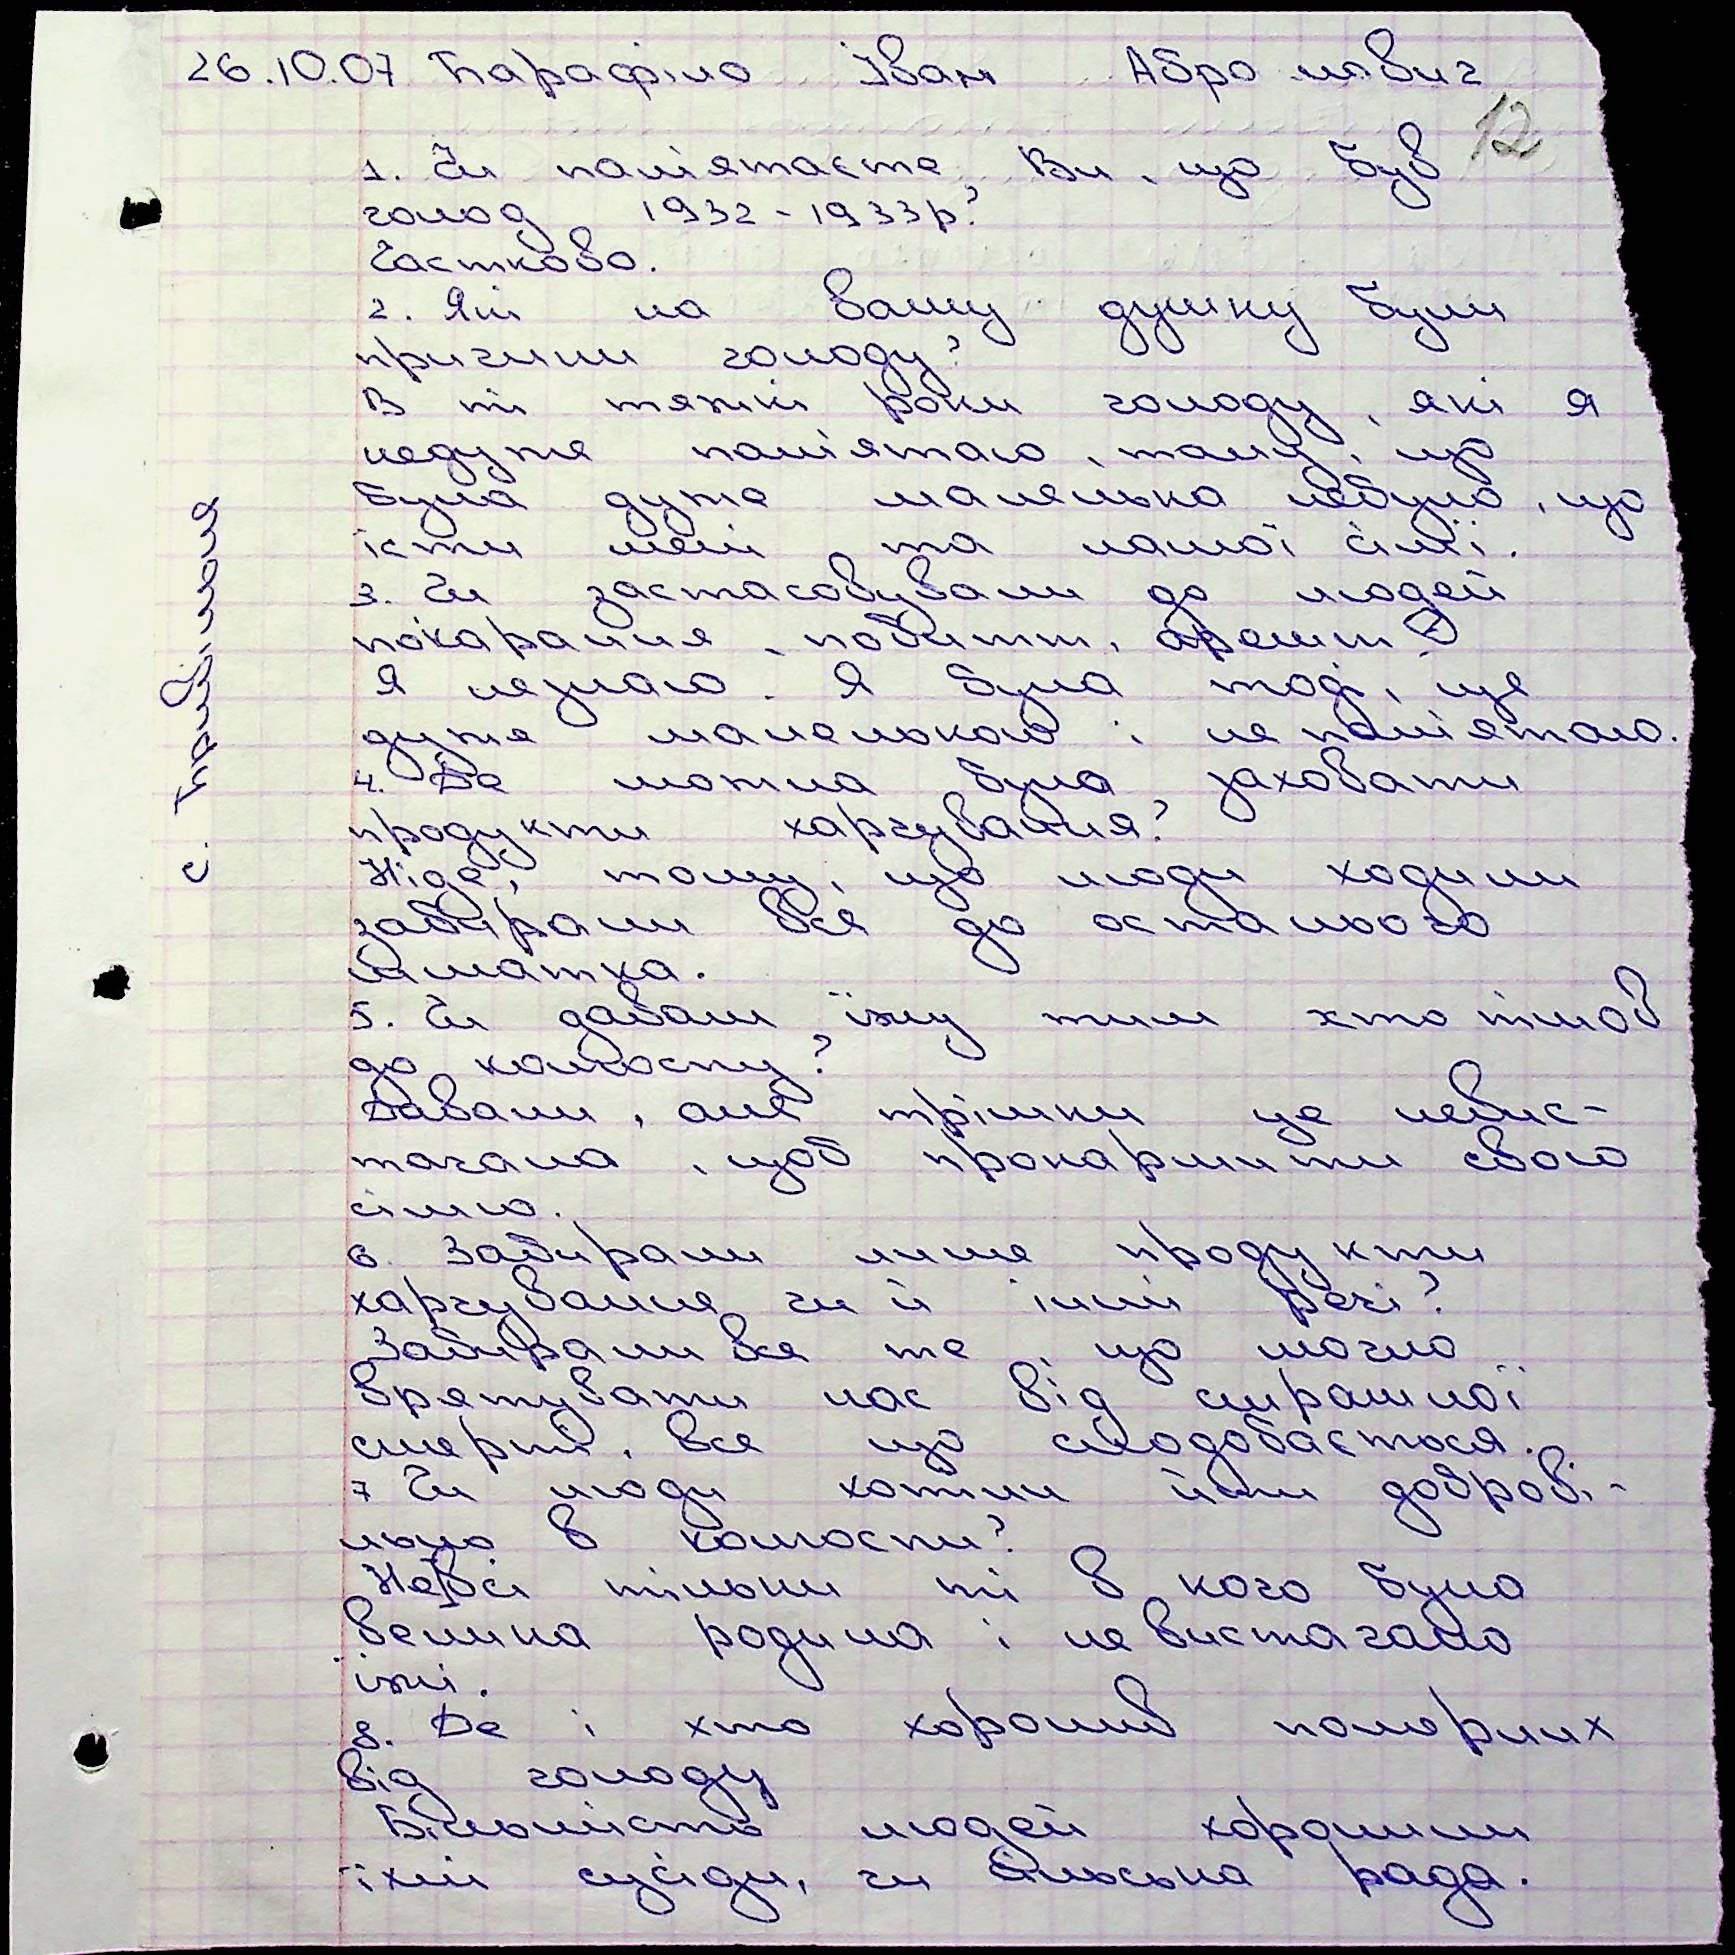 26.10.07 Карафіло Іван Абро мович
12
1. Чи пам'ятаєте Ви, що був
голод 1932-1933р?
Частково.
2. Які на вашу думку були
причини голоду?
В ті тяжкі роки голоду, які я
недуже пам'ятаю, тому, що
була дуже маленька небуло, що
їсти мені та нашої сім'ї.
3. Чи застасовували до людей
покарання, побитт, арешт?
Я незнаю. Я була тоді, ще
дуже маленькою і не пам'ятаю.
4. Де можна було заховати
продукти харчування?
Ніде, тому, що люди ходили
забирали все до останього
шматка.
5. Чи давали їжу тим хто пішов
до колгоспу?
Давали, але трішки це невис-
тачала, щоб прокормити свою
сімю.
6. Забирали лише продукти
харчування чи й інші речі?
Забирали все те що могло
врятувати нас від страшної
смерті, все що сподобається.
7 Чи люди хотіли йти доброві-
льно в колгоспи?
Невсі тільки ті в кого була
велика родина і не вистачало
їжі.
8. Де і хто хоронив померлих
від голоду
Більшість людей хоронили
їхні сусіди, чи сільська рада.
с.